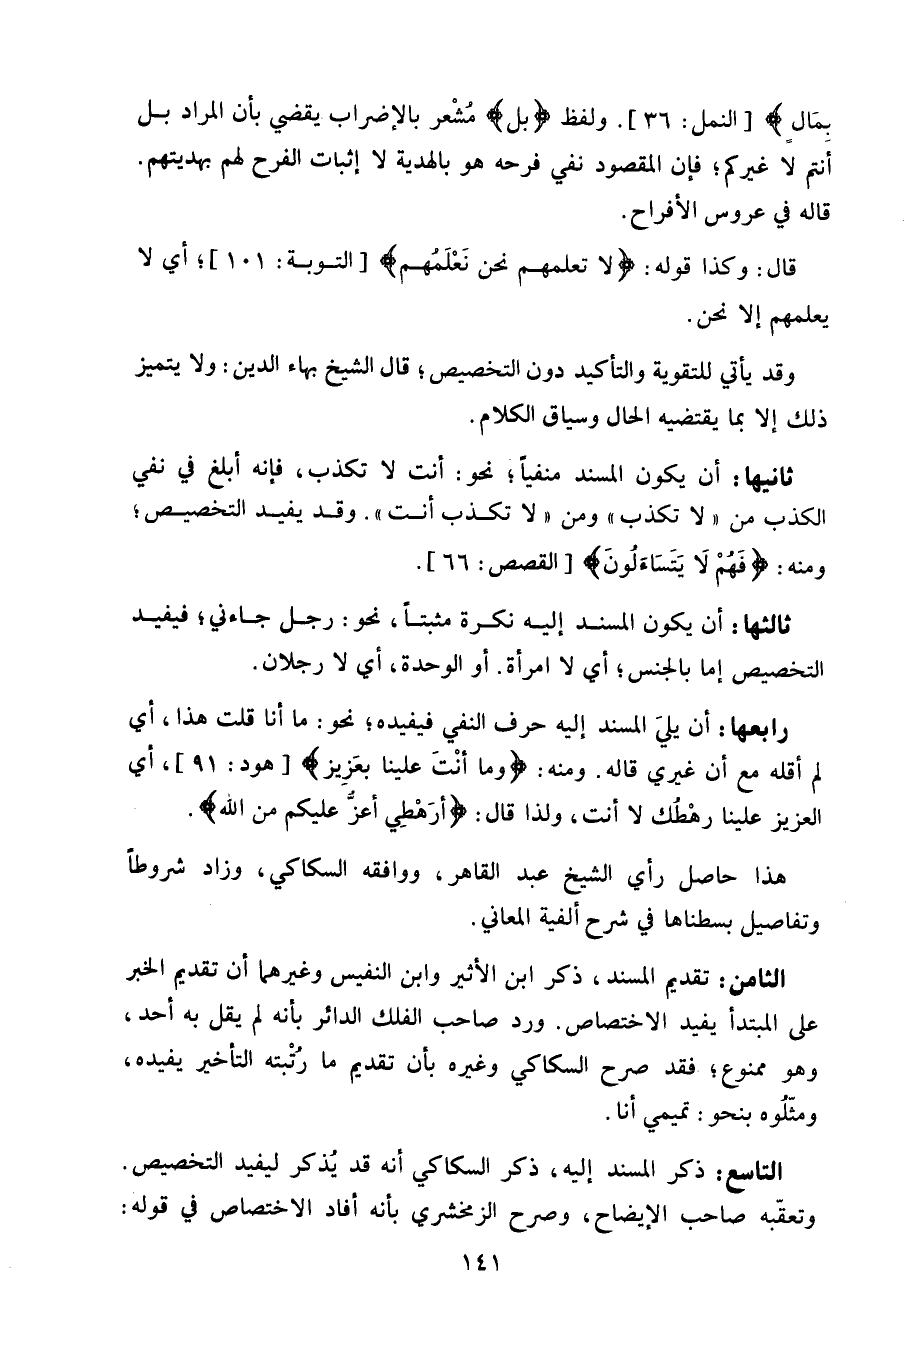 بِمَالٍ﴾ [النمل: ٣٦]. ولفظ ﴿بل﴾ مُشْعر بالإضراب يقضي بأن المراد بـل
أنتم لا غيركم؛ فإن المقصود نفي فرحه هو بالهدية لا إثبات الفرح لهم بهديتهم.
قاله في عروس الأفراح.
قال: وكذا قوله: ﴿لا تعلمهـم نحن نَعْلَمُهـم﴾ [التـوبـة: ١٠١]؛ أي لا
يعلمهم إلا نحن.
وقد يأتي للتقوية والتأكيد دون التخصيص؛ قال الشيخ بهاء الدين: ولا يتميز
ذلك إلا بما يقتضيه الحال وسياق الكلام.
ثانيها: أن يكون المسند منفياً؛ نحو: أنت لا تكذب، فإنه أبلغ في نفي
الكذب من «لا تكذب» ومن «لا تكـذب أنـت». وقـد يفيـد التخصيـص؛
ومنه: ﴿فَهُمْ لَا يَتَسَاءَلُونَ﴾ [القصص: ٦٦].
ثالثها: أن يكون المسنـد إليـه نكـرة مثبتـاً، نحو: رجـل جـاءني؛ فيفيـد
التخصيص إما بالجنس؛ أي لا امرأة. أو الوحدة، أي لا رجلان.
رابعها: أن يليَ المسند إليه حرف النفي فيفيده؛ نحو: ما أنا قلت هذا، أي
لم أقله مع أن غيري قاله. ومنه: ﴿وما أنْتَ علينا بعَزِيز﴾ [هود: ٩١]، أي
العزيز علينا رهْطُك لا أنت، ولذا قال: ﴿أرَهْطِي أعزُّ عليكم من الله﴾.
هذا حاصل رأي الشيخ عبد القاهر، ووافقه السكاكي، وزاد شروطاً
وتفاصيل بسطناها في شرح ألفية المعاني.
الثامن: تقديم المسند، ذكر ابن الأثير وابن النفيس وغيرهما أن تقديم الخبر
على المبتدأ يفيد الاختصاص. ورد صاحب الفلك الدائر بأنه لم يقل به أحد،
وهو ممنوع؛ فقد صرح السكاكي وغيره بأن تقديم ما رُتْبته التأخير يفيده،
ومثّلُوه بنحو: تميمي أنا.
التاسع: ذكر المسند إليه، ذكر السكاكي أنه قد يُذكر ليفيد التخصيص.
وتعقّبه صاحب الإيضاح، وصرح الزمخشري بأنه أفاد الاختصاص في قوله:
١٤١